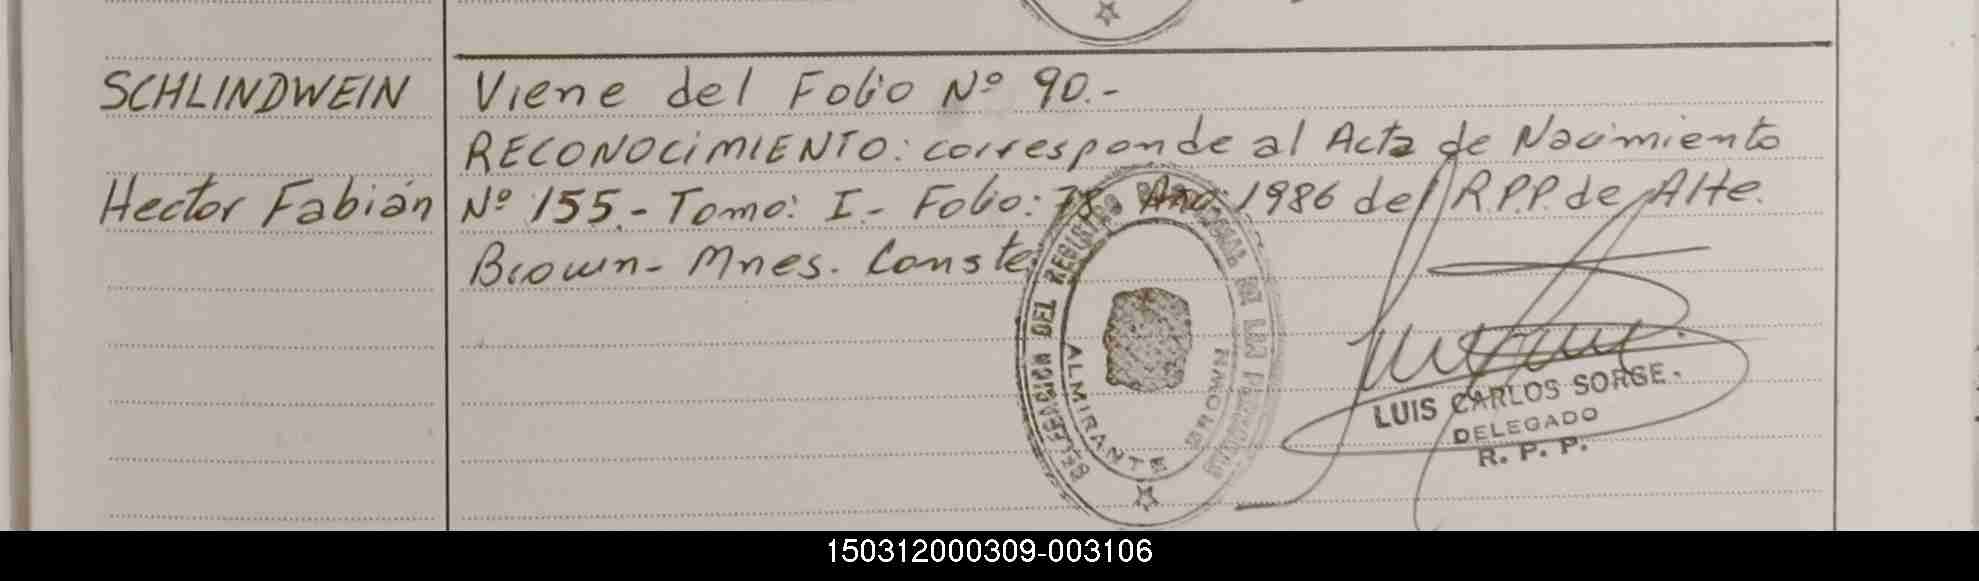 SCHLINDWEIN
Hector Fabián
Viene del Folio Nº 90.-
RECONOCIMIENTO: corresponde al Acta de Nacimiento
Nº 155.- Tomo: I.- Folio: 78. Año: 1986 del R.P.P. de Alte.
Brown- Mnes. Conste
DELEGACION DEL REGISTRO PROVINCIAL DE LAS PERSONAS
ALMIRANTE BROWN
LUIS CARLOS SORGE.
DELEGADO
R. P. P.
150312000309-003106